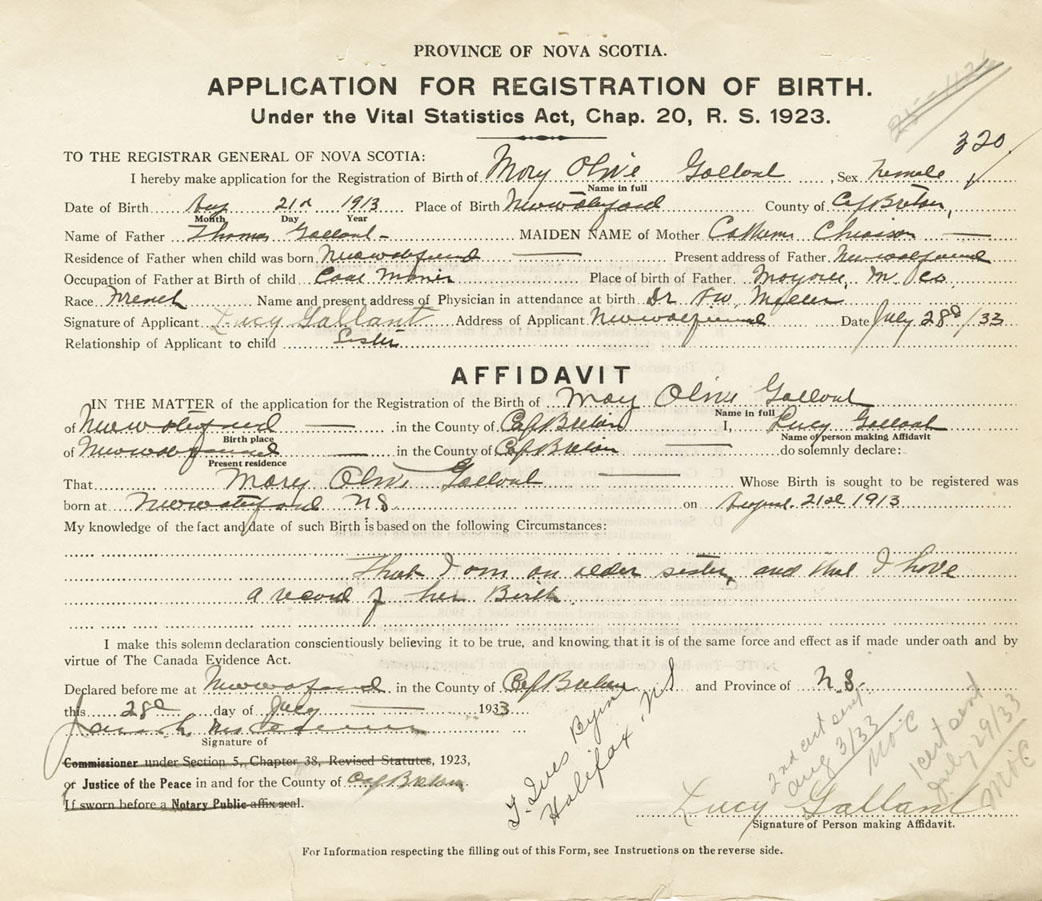 PROVINCE OF NOVA SCOTIA.
APPLICATION FOR REGISTRATION OF BIRTH.
Under the Vital Statistics Act, Chap. 20, R. S. 1923.
320
TO THE REGISTRAR GENERAL OF NOVA SCOTIA:
I hereby make application for the Registration of Birth of Mary Olive Gallant, Sex Female
Name in full
Date of Birth Aug 21st 1913 Place of Birth New Waterford County of Cape Breton,
Month Day Year
Name of Father Thomas Gallant MAIDEN NAME of Mother Chiasson
Residence of Father when child was born New Waterford Present address of Father New Waterford
Occupation of Father at Birth of child Coal Miner Place of birth of Father
Race French Name and present address of Physician in attendance at birth Dr
Signature of Applicant Lucy Gallant Address of Applicant New Waterford Date July 28d/33
Relationship of Applicant to child Sister
AFFIDAVIT
IN THE MATTER of the application for the Registration of the Birth of Mary Olive Gallant
Name in full
of New Waterford in the County of Cape Breton I, Lucy Gallant
Birth place Name of person making Affidavit
of New Waterford in the County of Cape Breton do solemnly declare:
Present residence
That Mary Olive Gallant Whose Birth is sought to be registered was
born at New Waterford N S on August 21st 1913
My knowledge of the fact and date of such Birth is based on the following Circumstances:
That I am an older sister, and that I have
a record of her Birth.
I make this solemn declaration conscientiously believing it to be true, and knowing that it is of the same force and effect as if made under oath and by
virtue of The Canada Evidence Act.
Declared before me at in the County of Cape Breton and Province of N.S.
this 28d day of July 1933
Signature of
Commissioner under Section 5, Chapter 38, Revised Statutes, 1923,
or Justice of the Peace in and for the County of Cape Breton
If sworn before a Notary Public affix seal.
Halifax NS
2nd cert sent
Aug 3/33
MOC
1 cert sent
July 29/33
MOC
Lucy Gallant
Signature of Person making Affidavit.
For Information respecting the filling out of this Form, see Instructions on the reverse side.